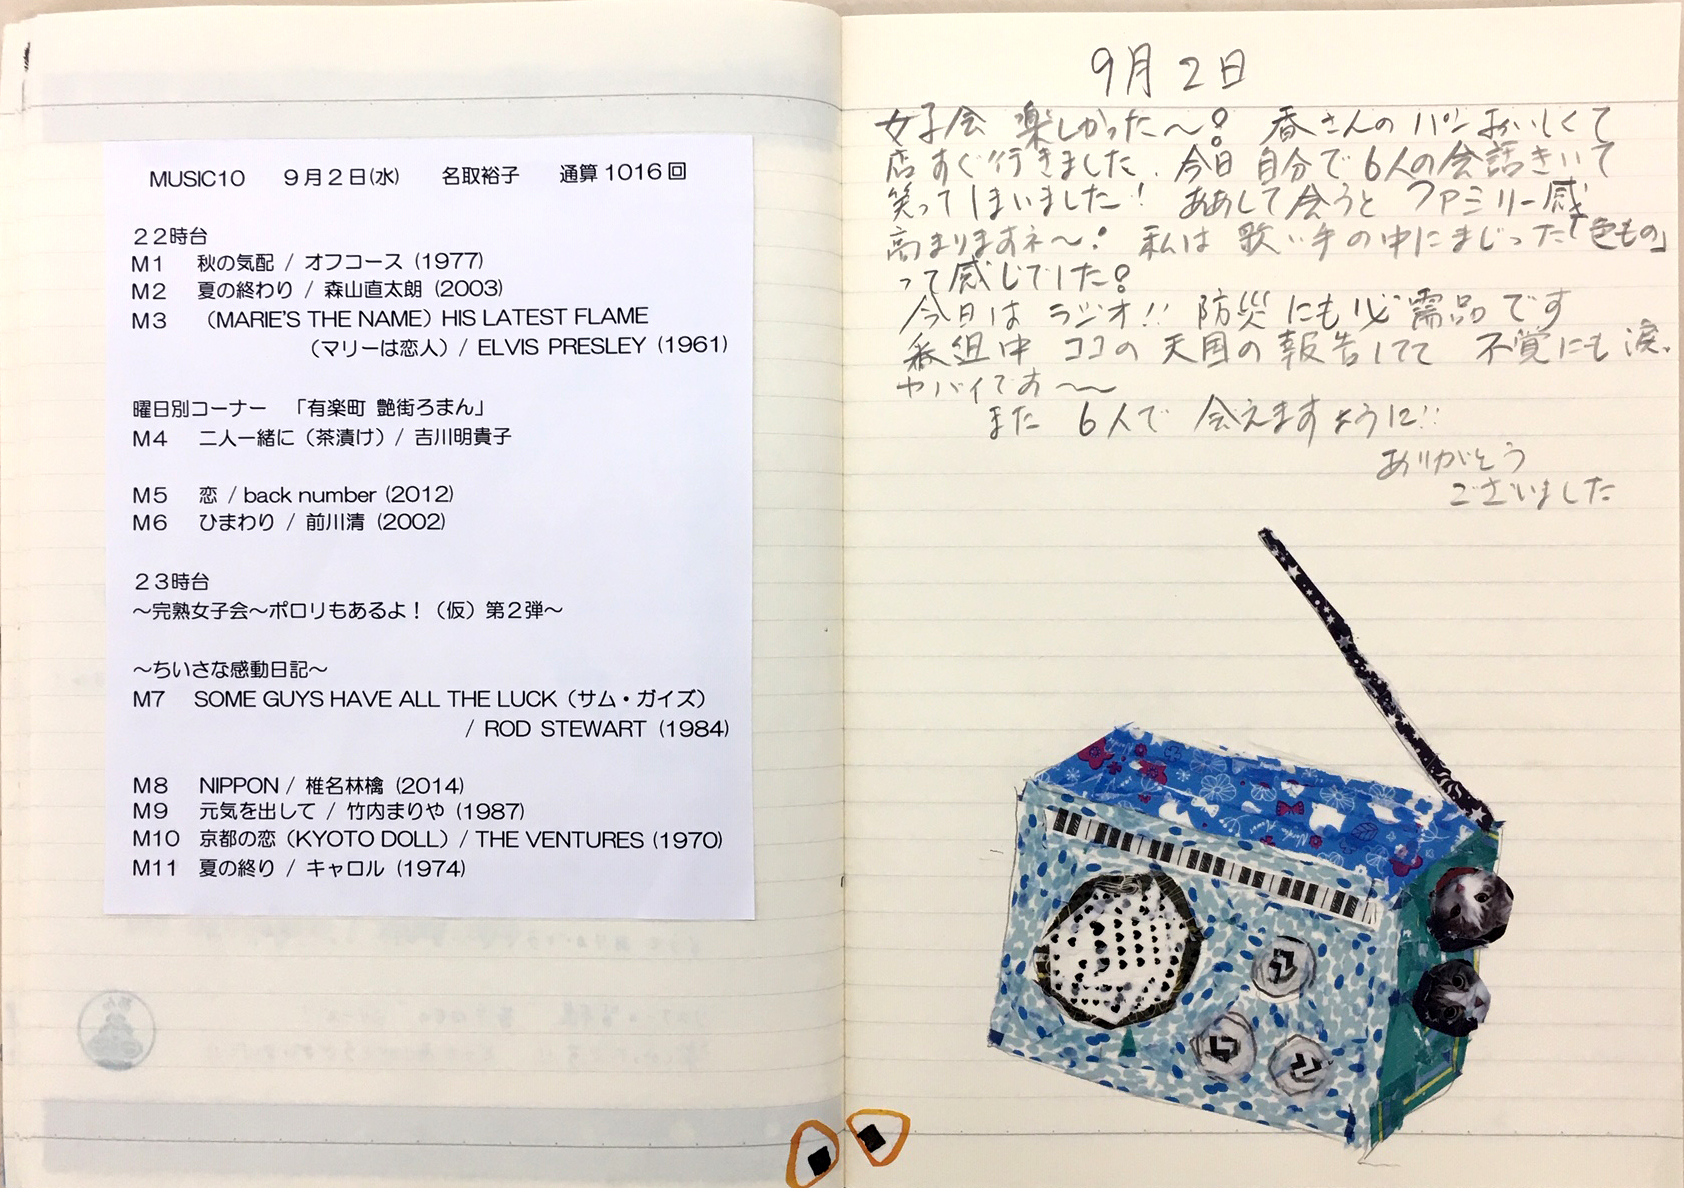 MUSIC10 9月2日(水) 名取裕子 通算1016回
22時台
M1 秋の気配 / オフコース (1977)
M2 夏の終わり / 森山直太朗 (2003)
M3 (MARIE'S THE NAME) HIS LATEST FLAME
(マリーは恋人) / ELVIS PRESLEY (1961)
曜日別コーナー 「有楽町 艶街ろまん」
M4 二人一緒に(茶漬け) / 吉川明貴子
M5 恋 / back number (2012)
M6 ひまわり / 前川清 (2002)
23時台
～完熟女子会～ポロリもあるよ！(仮) 第2弾～
～ちいさな感動日記～
M7 SOME GUYS HAVE ALL THE LUCK (サム・ガイズ)
/ ROD STEWART (1984)
M8 NIPPON / 椎名林檎 (2014)
M9 元気を出して / 竹内まりや (1987)
M10 京都の恋 (KYOTO DOLL) / THE VENTURES (1970)
M11 夏の終り / キャロル (1974)
9月2日
女子会 楽しかった～! 香さんの パン おいしくて
店すぐ行きました. 今日 自分で 6人の会話きいて
笑ってしまいました! ああして会うと ファミリー感
高まりますネ～! 私は 歌い手の中にまじった「色もの」
って感じでした!
今日は ラジオ!! 防災にも必需品です
番組中 ココの 天国の報告してて 不覚にも 涙.
ヤバイです～～
また 6人で 会えますように!!
ありがとう
ございました